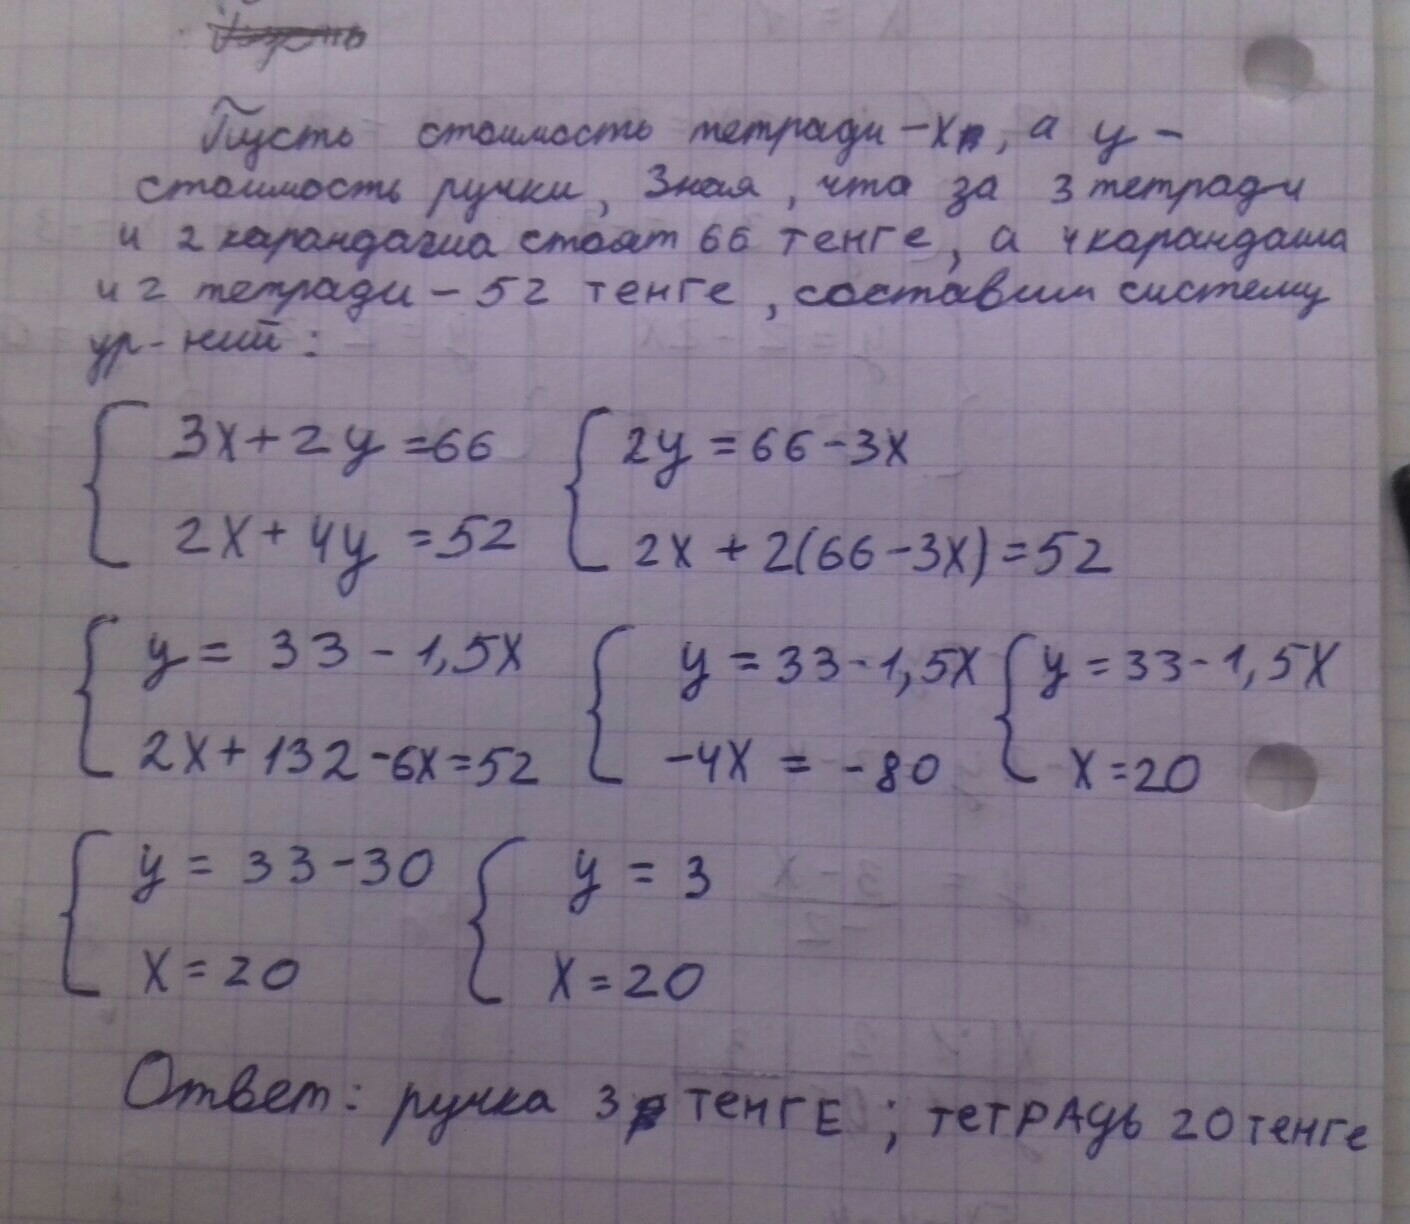 Пусть стоимость тетради - x, а y -
стоимость ручки, Зная, что за 3 тетради
и 2 карандаша стоят 66 тенге, а 4 карандаша
и 2 тетради - 52 тенге, составим систему
ур-ний:
3x+2y=66 2y=66-3x
2x+4y=52 2x+2(66-3x)=52
y=33-1,5x y=33-1,5x y=33-1,5x
2x+132-6x=52 -4x=-80 x=20
y=33-30 y=3
x=20 x=20
Ответ: ручка 3 тенгЕ; тетРАдь 20 тенге